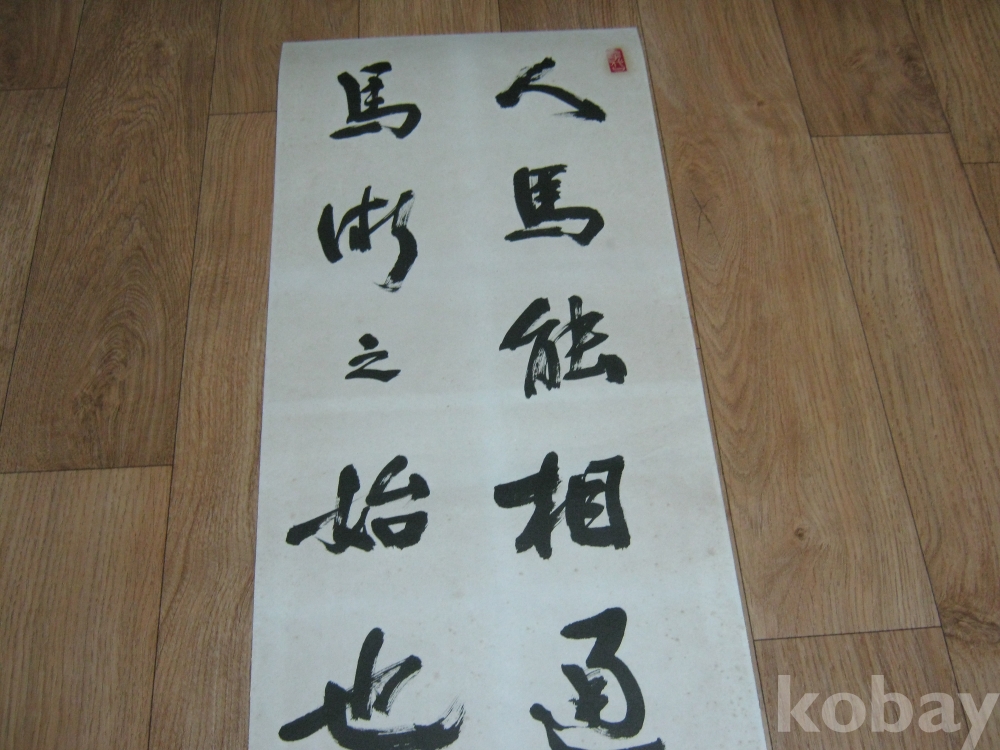 人馬能相通
馬術之始也
kobay